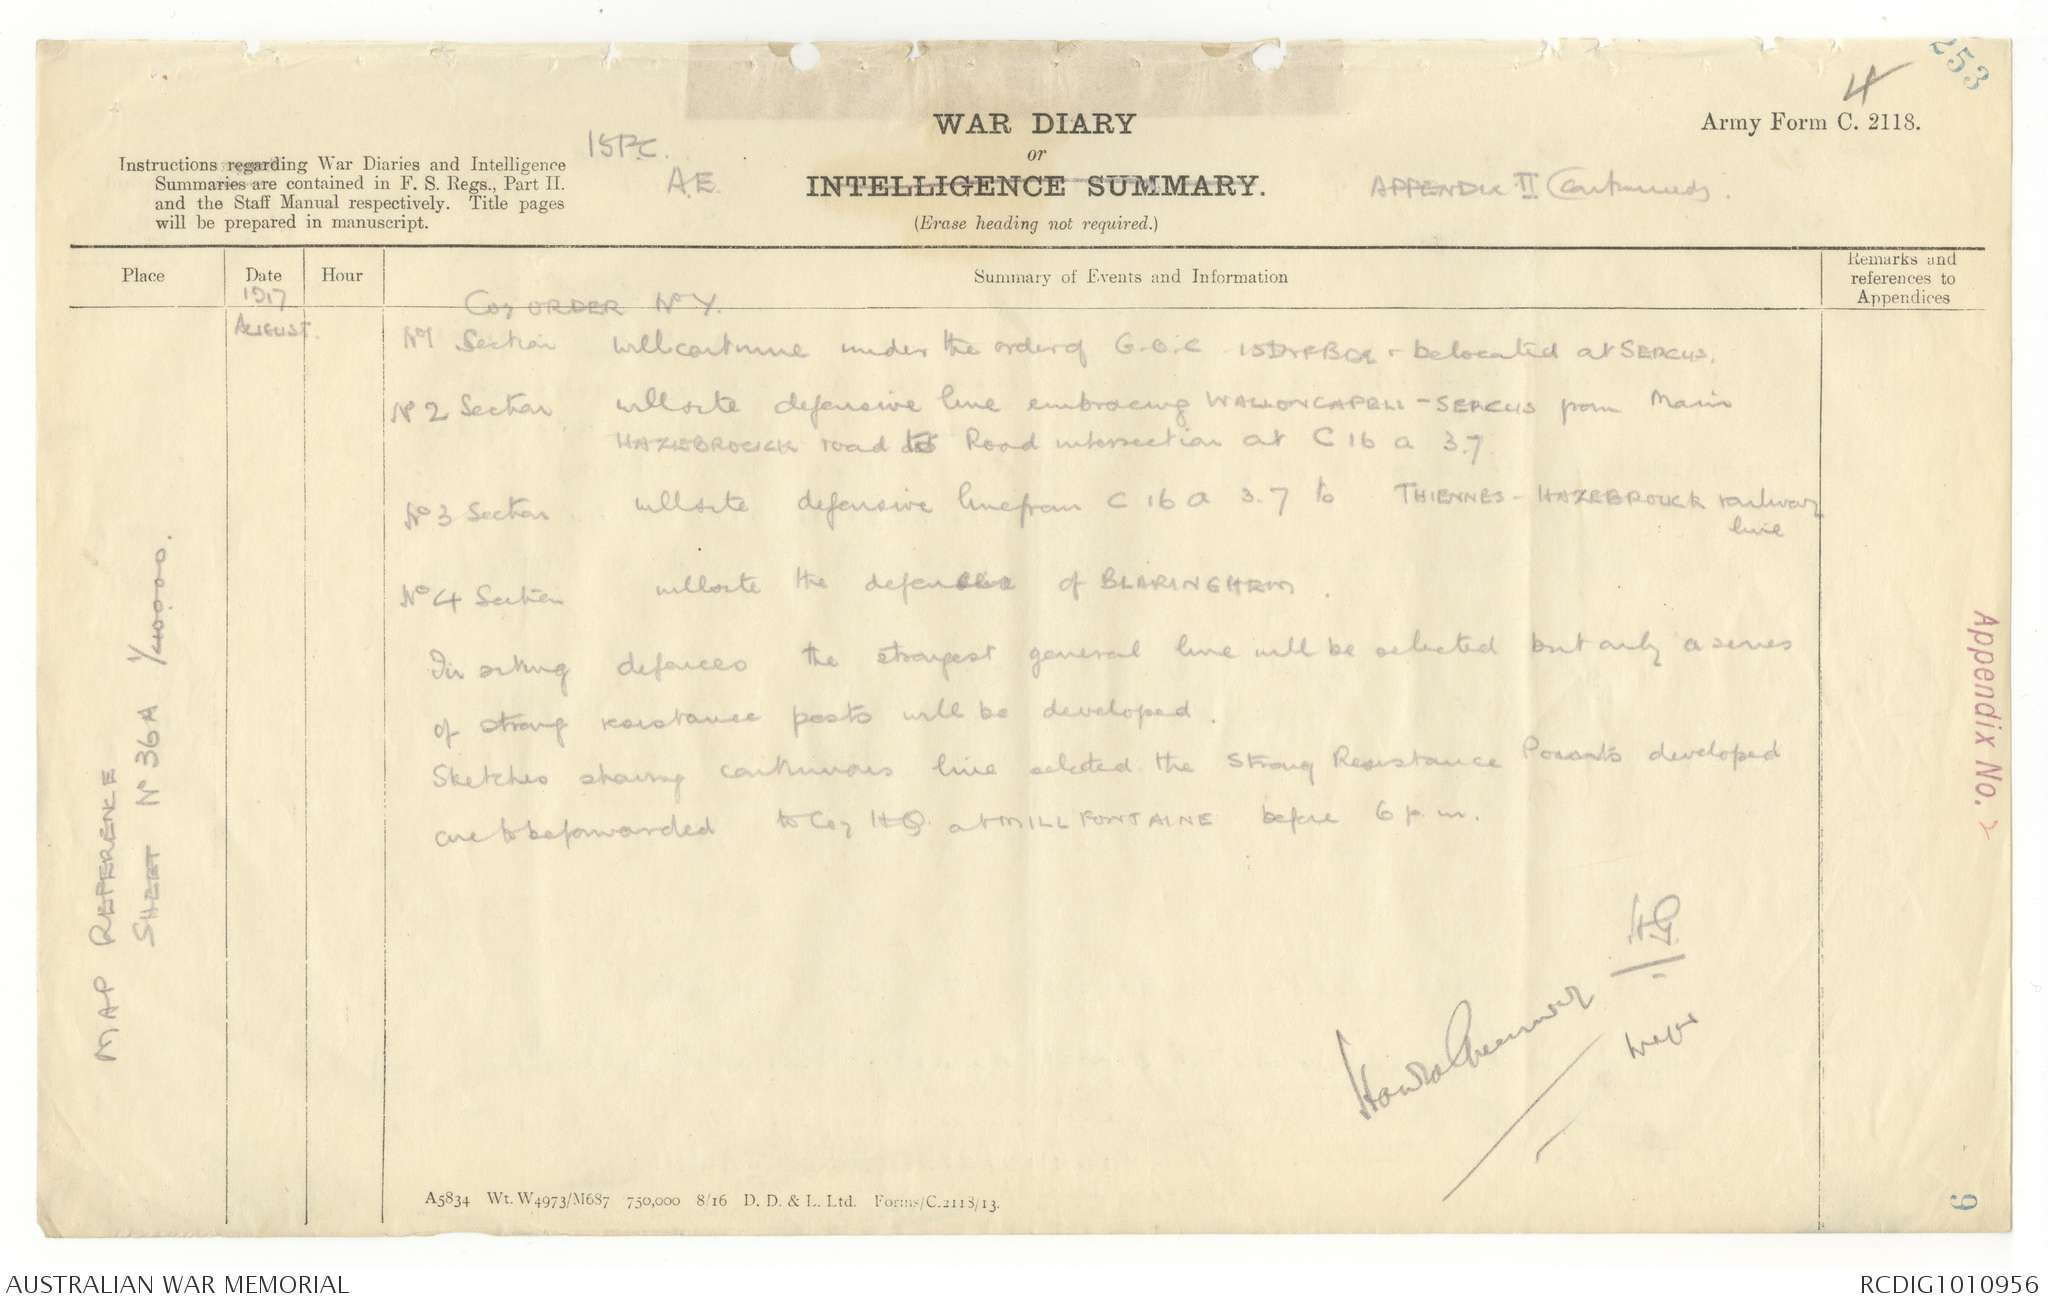 253
4
Army Form C. 2118.
WAR DIARY
or
INTELLIGENCE SUMMARY.
(Erase heading not required.)
Instructions regarding War Diaries and Intelligence
Summaries are contained in F. S. Regs., Part II.
and the Staff Manual respectively. Title pages
will be prepared in manuscript.
15 F.C.
A.E.
APPENDIX II (Continued).
Place
Date
Hour
Summary of Events and Information
Remarks and
references to
Appendices
1917
AUGUST.
Coy ORDER No Y.
No 1 Section will continue under the order of G.O.C 15 INF BDE & be located at SERCUS.
No 2 Section will site defensive line embracing WALLONCAPELL - SERCUS from Main
HAZEBROUCK road to Road intersection at C 16 a 3.7
No 3 Section will site defensive line from C 16 a 3.7 to THIENNES - HAZEBROUCK railway
line
No 4 Section will site the defence of BLARINGHEM.
In siting defences the strongest general line will be selected but only a series
of strong resistance posts will be developed.
Sketches showing continuous line selected the Strong Resistance Points developed
are to be forwarded to Coy HQ. at MILL FONTAINE before 6 p.m.
Major
MAP REFERENCE
SHEET No 36A 1/40000.
Appendix No. 2
A5834 Wt. W4973/M687 750,000 8/16 D. D. & L. Ltd. Forms/C.2118/13.
9
AUSTRALIAN WAR MEMORIAL
RCDIG1010956